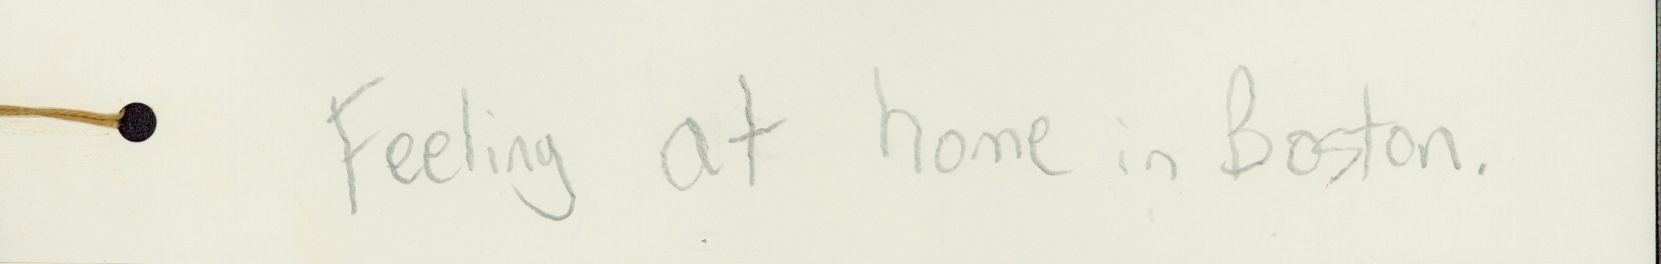 Feeling at home in Boston.